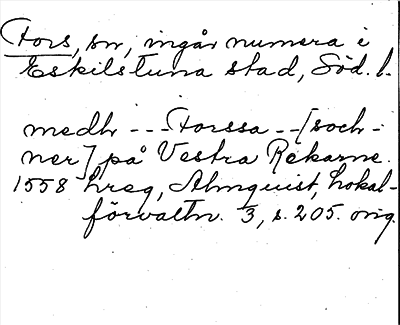 Fors, sn, ingår numera i
Eskilstuna stad, Söd. l.
medh - - - Forssa - - [soch-
ner] på Vestra Rekarne.
1558 hreg, Almquist, Lokal-
förvaltn. 3, s. 205. orig.